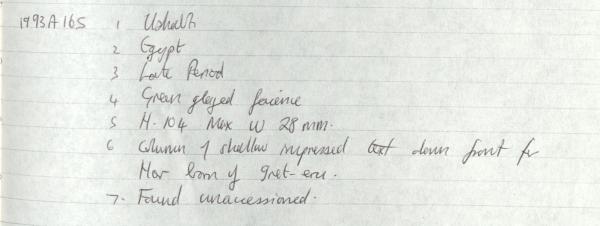 1993A165 1 Ushabti
2 Egypt
3 Late Period
4 Green glazed faience
5 H. 104 Max W 28 mm.
6 Column of shallow impressed text down front for
Hor born of Iret-eru.
7. Found unaccessioned.